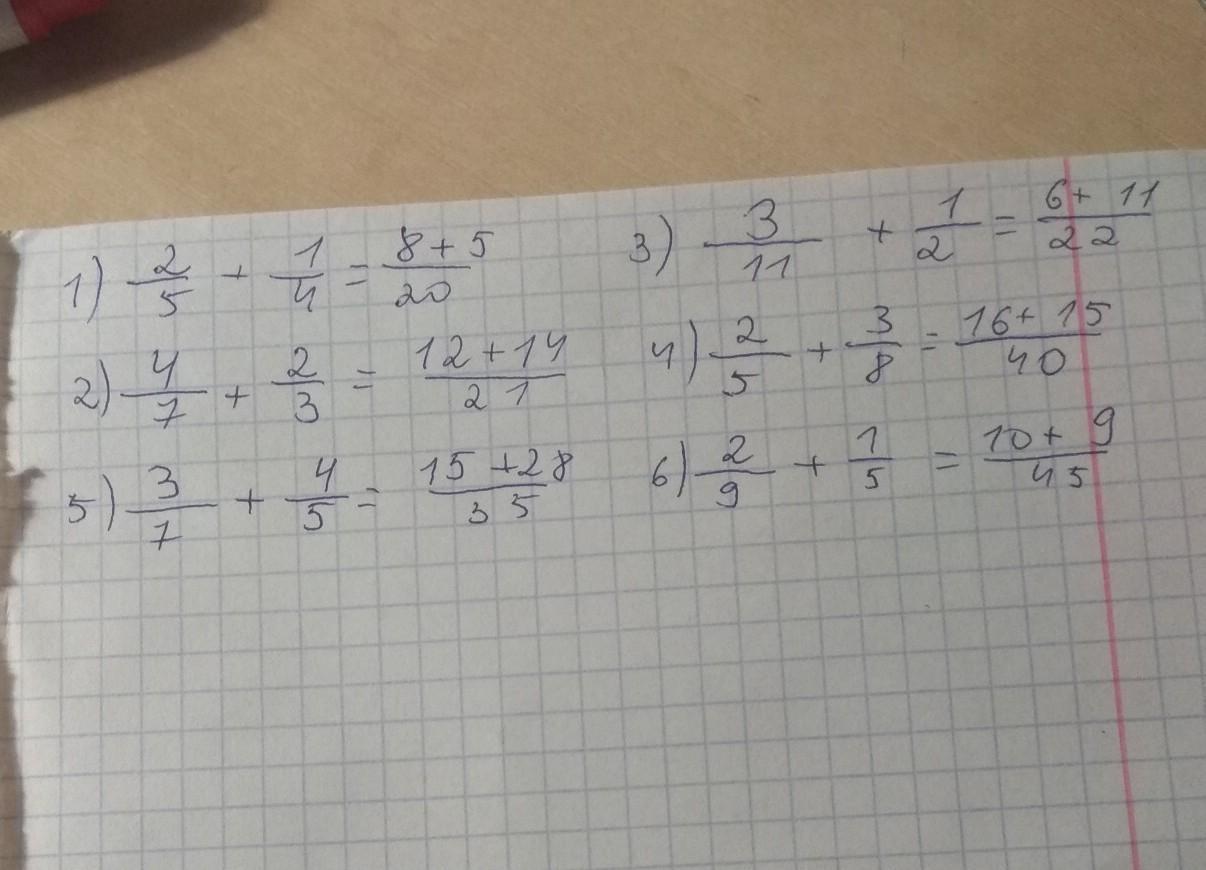 1) 2/5 + 1/4 = (8+5)/20
3) 3/11 + 1/2 = (6+11)/22
2) 4/7 + 2/3 = (12+14)/21
4) 2/5 + 3/8 = (16+15)/40
5) 3/7 + 4/5 = (15+28)/35
6) 2/9 + 1/5 = (10+9)/45